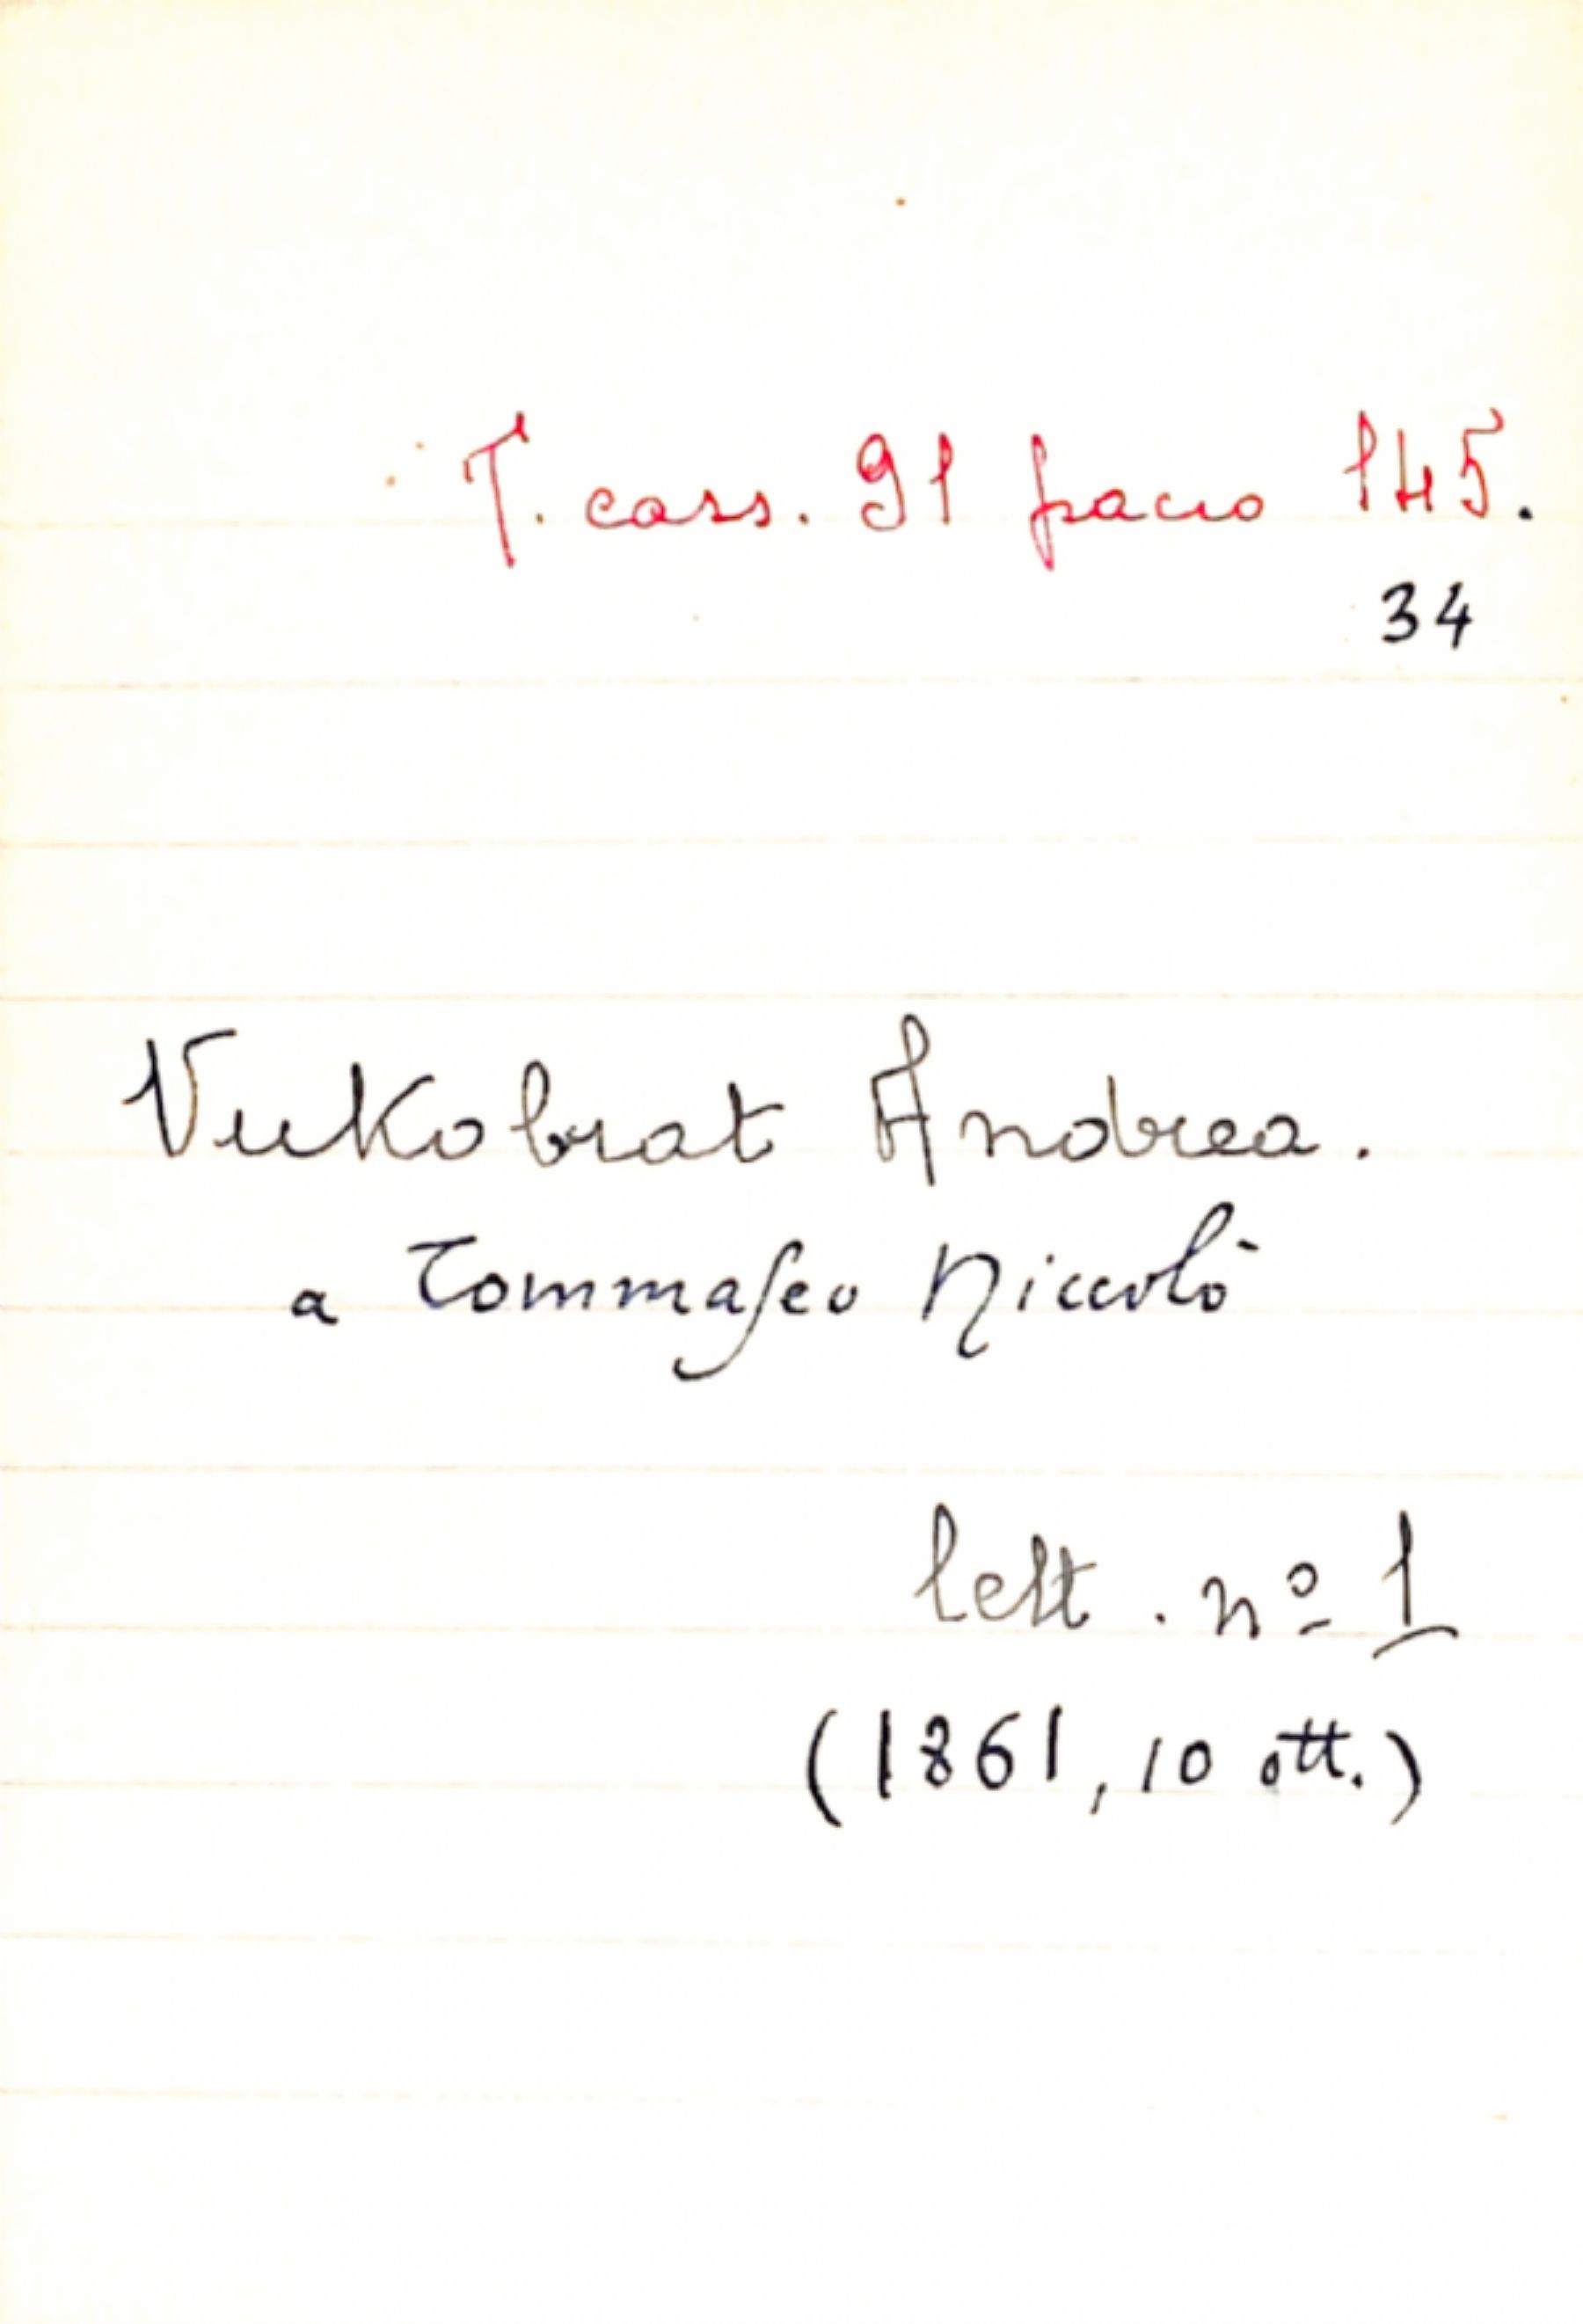 T. cass. 91 pacco 145.
34
Vukobrat Andrea.
a Tommaseo Niccolò
lett. nº 1
(1861, 10 ott.)